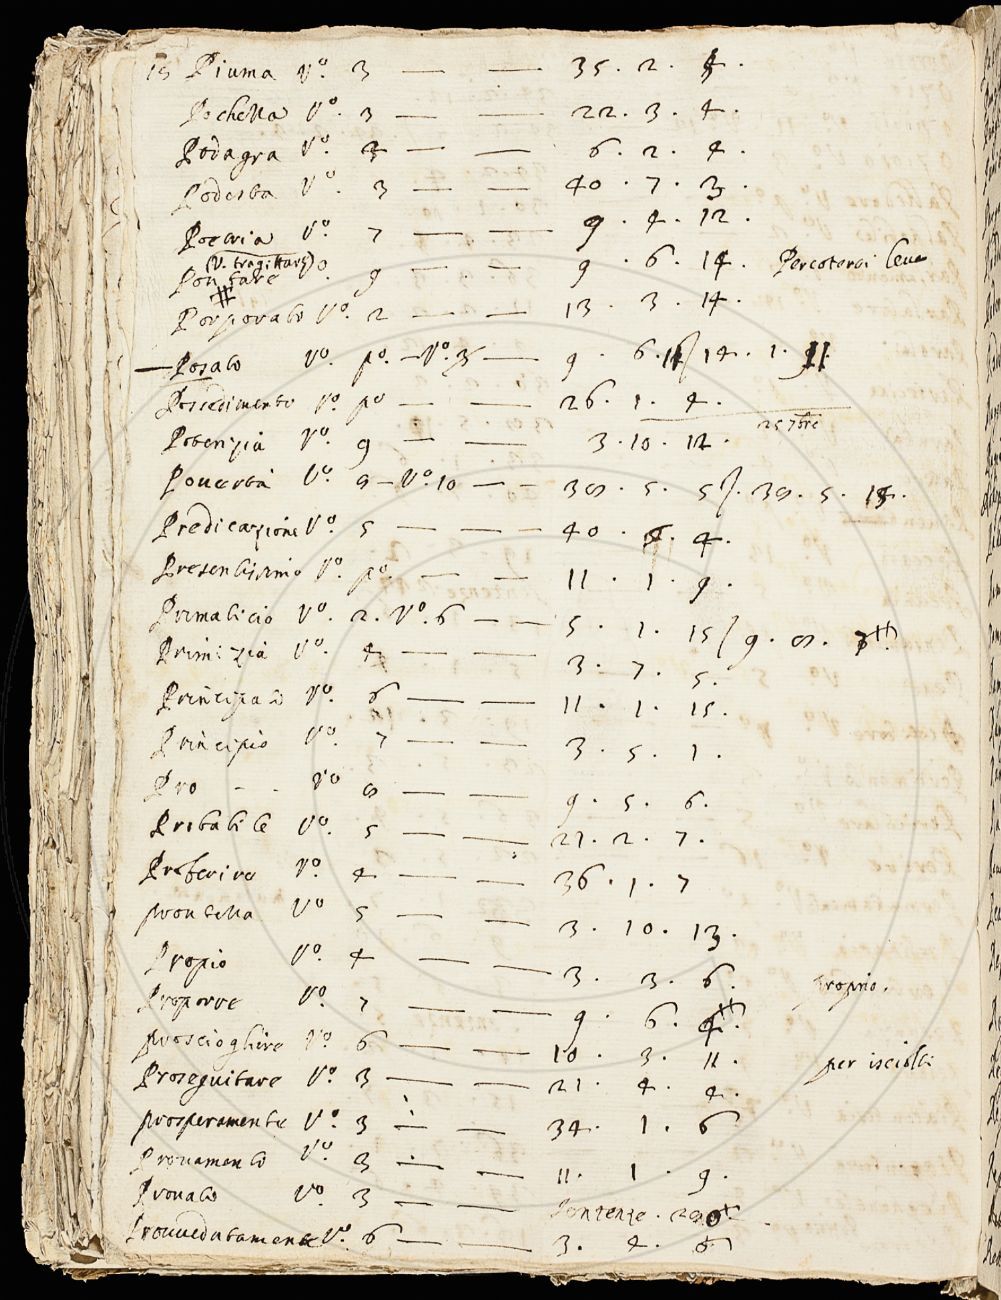 15 Piuma Vo. 3 — — 35. 2. 4.
Pochetta Vo. 3 — — 22. 3. 4.
Podagra Vo. 3 — — 6. 2. 4.
Podesta Vo. 3 — — 40. 7. 3.
Vo. 7 — — 9. 4. 12.
(V. tragittare)
Pontare Vo. 9 — — 9. 6. 14. Percotersi
#
Porporato Vo. 2 — — 13. 3. 14.
— Posato Vo. po. — Vo. 3 — 9. 6. / 14. 1. 11
Possedimento Vo. po — — 26. 1. 4.
25 7bre
Potenzia Vo. 9 — — 3. 10. 12.
Pouertà Vo. 8 — Vo. 10 — — 38. 5. 5 /. 38. 5. 15.
Predicazione Vo. 5 — — 40. 4.
Presentissimo Vo. po — — 11. 1. 9.
Primaticcio Vo. 2. Vo. 6 — — 5. 1. 15 / 9. 8. 7#
Primizia Vo. 4 — — 3. 7. 5.
Principato Vo. 6 — — 11. 1. 15.
Principio Vo. 7 — — 3. 5. 1.
Pro - - Vo 8 — — 9. 5. 6.
Probabile Vo. 5 — — 21. 2. 7.
Proferire Vo. 4 — — 36. 1. 7
Vo 5 — — 3. 10. 13.
Propio Vo. 4 — — 3. 3. 6. proprio.
Proporre Vo. 7 — — 9. 6. 4#.
prosciogliere Vo. 6 — — 10. 3. 11. per isciolti
Proseguitare Vo. 3 — — 21. 4. 4.
prosperamente Vo. 3 — — 34. 1. 6
Prouamento Vo. 3 — — 11. 1. 9.
Prouato Vo. 3 — — Sentenze.
Prouuedutamente Vo. 6 — — 3. 4. 6